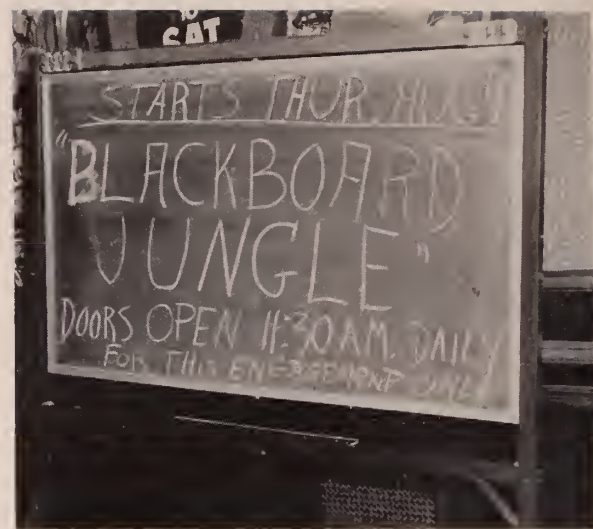 SAT
STARTS THUR.
"BLACKBOARD
JUNGLE"
DOORS OPEN 11:30 A.M. DAILY
FOR THIS ENGAGEMENT ONLY